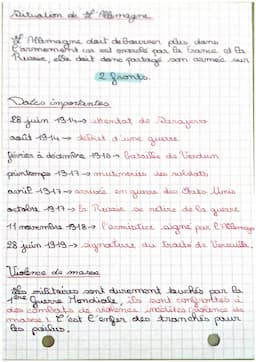 Situation de l'Allemagne
L'Allemagne doit débourser plus dans
l'armement car est encerclé par la France et la
Russie, elle doit donc partagé son armée sur
2 fronts.
Dates importantes
28 juin 1914 → attentat de Sarajevo
août 1914 → début d'une guerre
février à décembre 1916 → batailles de Verdun
printemps 1917 → mutineries des soldats
avril 1917 → arrivée en guerre des Etats-Unis
octobre 1917 → la Russie se retire de la guerre
11 novembre 1918 → l'armistice signé par l'Allemagne
28 juin 1919 → signature du traité de Versaille.
Violence de masse
Les militaires sont durement touchés par la
1ère Guerre Mondiale, ils sont confrontés à
des combats de violences inédites (violence de
masse). C'est l'enfer des tranchés pour
les poilus.